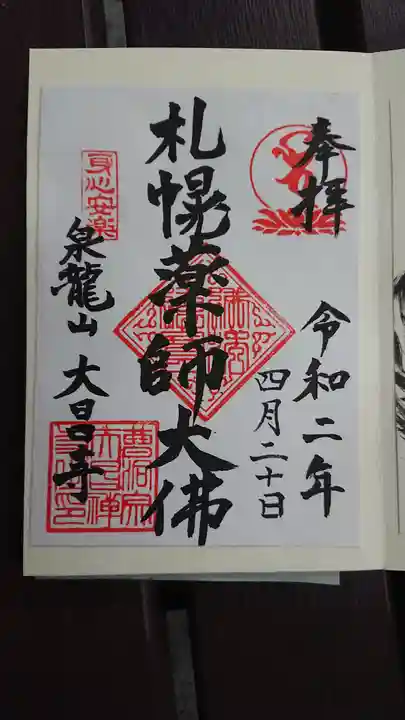 奉拝
令和二年
四月二十日
札幌薬師大佛
身心安楽
泉龍山 大昌寺